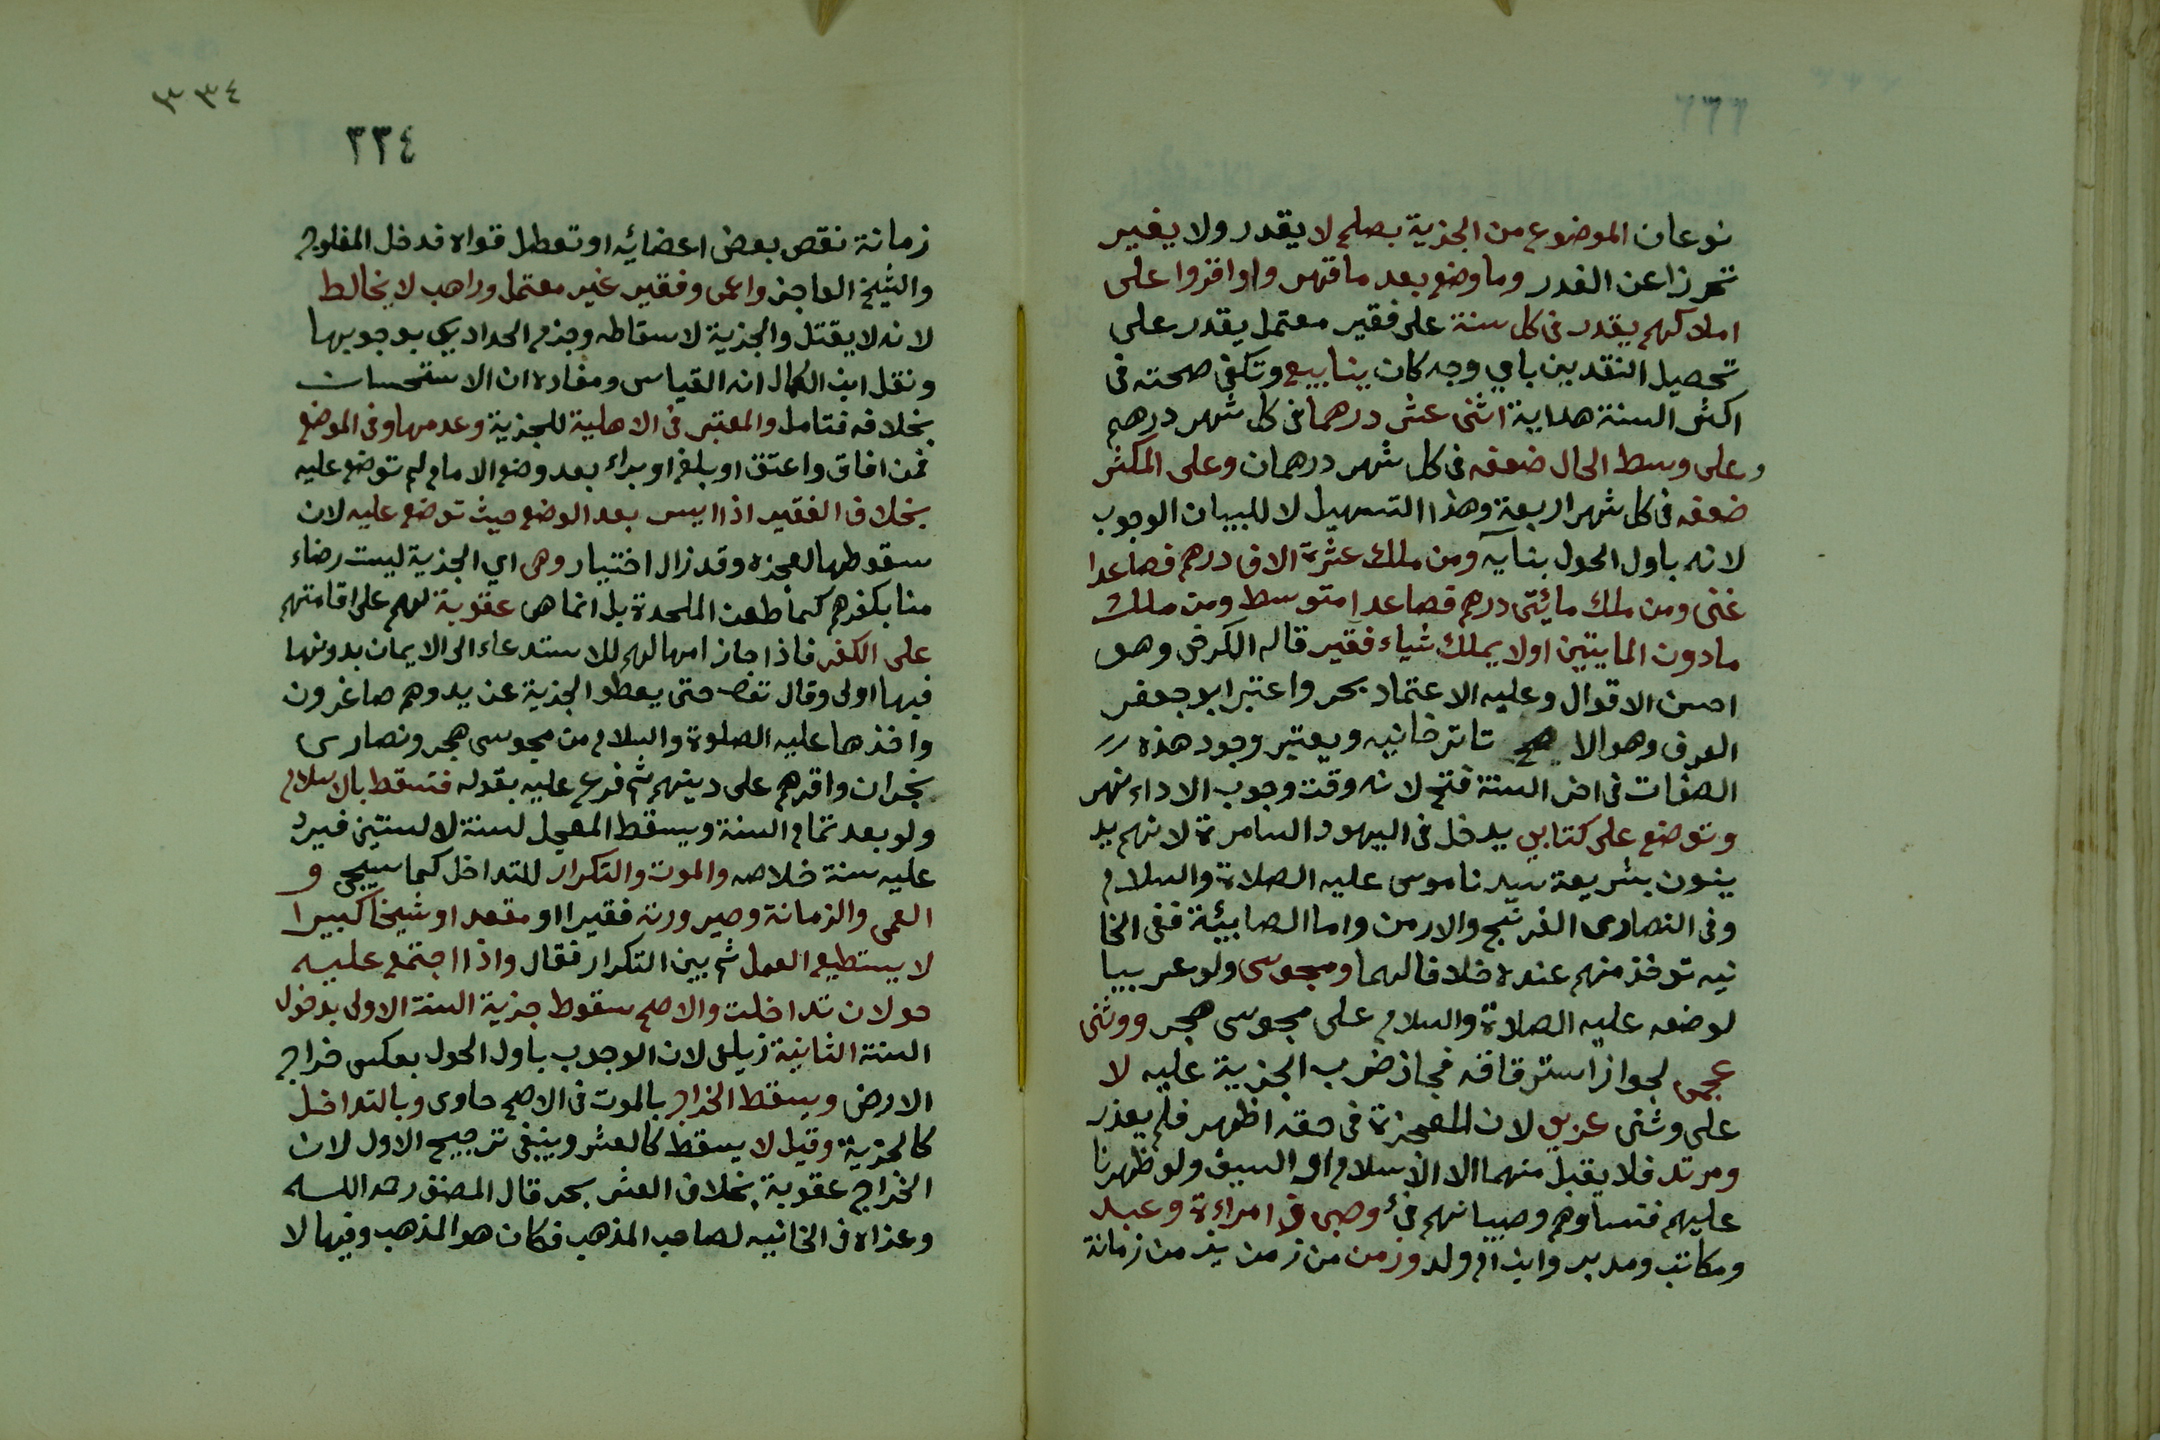 نوعان الموضوع من الجزية بصلح لا يقدر ولا يغير
تحرزا عن الغدر وما وضع بعد ما قهروا واقروا على
املاكهم يقدر فى كل سنة على فقير معتمل يقدر على
تحصيل النقدين باي وجه كان ينابيع وتكفى صحته فى
اكثر السنة هداية اثنى عشر درهما فى كل شهر درهم
وعلى وسط الحال ضعفه فى كل شهر درهمان وعلى المكثر
ضعفه فى كل شهر اربعة وهذا التسهيل لا للبيان الوجوب
لانه باول الحول بنآيه ومن ملك عشرة الاف درهم فصاعدا
غنى ومن ملك مائيتى درهم فصاعدا متوسط ومن ملك
مادون المايتين اولا يملك شياء فقير قاله الكرخى وهو
احسن الاقوال وعليه الاعتماد بحر واعتبر ابو جعفر
العرف وهو الاصح تاترخانيه ويعتبر وجود هذه
الصفات فى اخر السنة فتح لانه وقت وجوب الاداء نهر
وتوضع على كتابى يدخل فى اليهود السامرة لانهم يد
ينون بشريعة سيدنا موسى عليه الصلاة والسلام
وفى النصارى الفرنج والارمن واما الصابيئة ففى الخا
نيه توخذ منهم عنده خلافا لهما ومجوسى ولو عربيا
لوضعه عليه الصلاة والسلام على مجوسى هجر ووثنى
عجمى لجواز استرقاقه فجاز ضرب الجزية عليه لا
على وثنى عربى لان المعجزة فى حقه اظهر فلم يعذر
ومرتد فلا يقبل منهما الا الاسلام او السيف ولو ظهرنا
عليهم فنساوهم وصبيانهم فئ وصبى وامراءة وعبد
ومكاتب ومدبر وابن ام ولد وزمن من زمن يزمن زمانة
٣٣٤
٣٣٤
زمانة نقص بعض اعضائه او تعطل قواه فدخل المفلوج
والشيخ العاجز واعمى وفقير غير معتمل وراهب لا يخالط
لانه لا يقتل والجزية لاسقاطه وجزم الحدادي بوجوبها
ونقل ابن الكمال انه القياس ومفاده ان الاستحسان
بخلافه فتامل والمعتبر فى الاهلية للجزية وعدمها وفى الموضع
فمن افاق واعتق او بلغ او براء بعد وضع الامام لم توضع عليه
بخلاف الفقير اذا ايسر بعد الوضع حيث توضع عليه لان
سقوطها لعجزه وقد زال اختيار وهى اي الجزية ليست رضاء
منا بكفرهم كما طعن الملحدة بل انما هى عقوبة لهم على اقامتهم
على الكفر فاذا جاز امهالهم للاستدعاء الى الايمان بدونها
فبها اولى وقال تعا حتى يعطوا الجزية عن يد وهم صاغرون
واخذها عليه الصلوة والسلام من مجوسى هجر ونصارى
نجران واقرهم على دينهم ثم فرع عليه بقوله فتسقط بالاسلام
ولو بعد تمام السنة ويسقط المعجل لسنة لا لسنتين فيرد
عليه سنة خلاصه والموت والتكرار للتداخل كما سيجى و
العمى والزمانة وصيرورته فقيرا او مقعدا وشيخا كبيرا
لا يستطيع العمل ثم بين التكرار فقال واذا اجتمع عليه
حولان تداخلت والاصح سقوط جزية السنة الاولى بدخول
السنة الثانية زيلعى لان الوجوب باول الحول بعكس خراج
الارض ويسقط الخراج بالموت فى الاصح حاوى وبالتداخل
كالجزية وقيل لا يسقط كالعشر وينبغى ترجيح الاول لان
الخراج عقوبة بخلاف العشر بحر قال المصنف رحه الله
وعزاه فى الخانيه لصاحب المذهب فكان هو المذهب وفيها لا